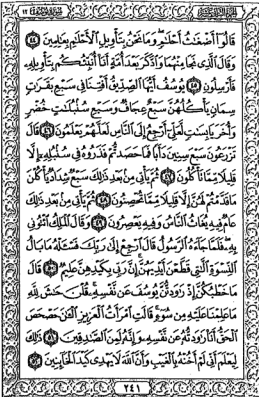 قَالُوٓا۟ أَضْغَـٰثُ أَحْلَـٰمٍ ۖ وَمَا نَحْنُ بِتَأْوِيلِ ٱلْأَحْلَـٰمِ بِعَـٰلِمِينَ ٤٤
وَقَالَ ٱلَّذِى نَجَا مِنْهُمَا وَٱدَّكَرَ بَعْدَ أُمَّةٍ أَنَا۠ أُنَبِّئُكُم بِتَأْوِيلِهِۦ
فَأَرْسِلُونِ ٤٥ يُوسُفُ أَيُّهَا ٱلصِّدِّيقُ أَفْتِنَا فِى سَبْعِ بَقَرَٰتٍ
سِمَانٍ يَأْكُلُهُنَّ سَبْعٌ عِجَافٌ وَسَبْعِ سُنۢبُلَـٰتٍ خُضْرٍ
وَأُخَرَ يَابِسَـٰتٍ لَّعَلِّىٓ أَرْجِعُ إِلَى ٱلنَّاسِ لَعَلَّهُمْ يَعْلَمُونَ ٤٦ قَالَ
تَزْرَعُونَ سَبْعَ سِنِينَ دَأَبًا فَمَا حَصَدتُّمْ فَذَرُوهُ فِى سُنۢبُلِهِۦٓ إِلَّا
قَلِيلًا مِّمَّا تَأْكُلُونَ ٤٧ ثُمَّ يَأْتِى مِنۢ بَعْدِ ذَٰلِكَ سَبْعٌ شِدَادٌ يَأْكُلْنَ
مَا قَدَّمْتُمْ لَهُنَّ إِلَّا قَلِيلًا مِّمَّا تُحْصِنُونَ ٤٨ ثُمَّ يَأْتِى مِنۢ بَعْدِ ذَٰلِكَ
عَامٌ فِيهِ يُغَاثُ ٱلنَّاسُ وَفِيهِ يَعْصِرُونَ ٤٩ وَقَالَ ٱلْمَلِكُ ٱئْتُونِى
بِهِۦ ۖ فَلَمَّا جَآءَهُ ٱلرَّسُولُ قَالَ ٱرْجِعْ إِلَىٰ رَبِّكَ فَسْـَٔلْهُ مَا بَالُ
ٱلنِّسْوَةِ ٱلَّـٰتِى قَطَّعْنَ أَيْدِيَهُنَّ ۚ إِنَّ رَبِّى بِكَيْدِهِنَّ عَلِيمٌ ٥٠ قَالَ
مَا خَطْبُكُنَّ إِذْ رَٰوَدتُّنَّ يُوسُفَ عَن نَّفْسِهِۦ ۚ قُلْنَ حَـٰشَ لِلَّهِ
مَا عَلِمْنَا عَلَيْهِ مِن سُوٓءٍ ۚ قَالَتِ ٱمْرَأَتُ ٱلْعَزِيزِ ٱلْـَٔـٰنَ حَصْحَصَ
ٱلْحَقُّ أَنَا۠ رَٰوَدتُّهُۥ عَن نَّفْسِهِۦ وَإِنَّهُۥ لَمِنَ ٱلصَّـٰدِقِينَ ٥١ ذَٰلِكَ
لِيَعْلَمَ أَنِّى لَمْ أَخُنْهُ بِٱلْغَيْبِ وَأَنَّ ٱللَّهَ لَا يَهْدِى كَيْدَ ٱلْخَآئِنِينَ ٥٢
٢٤١